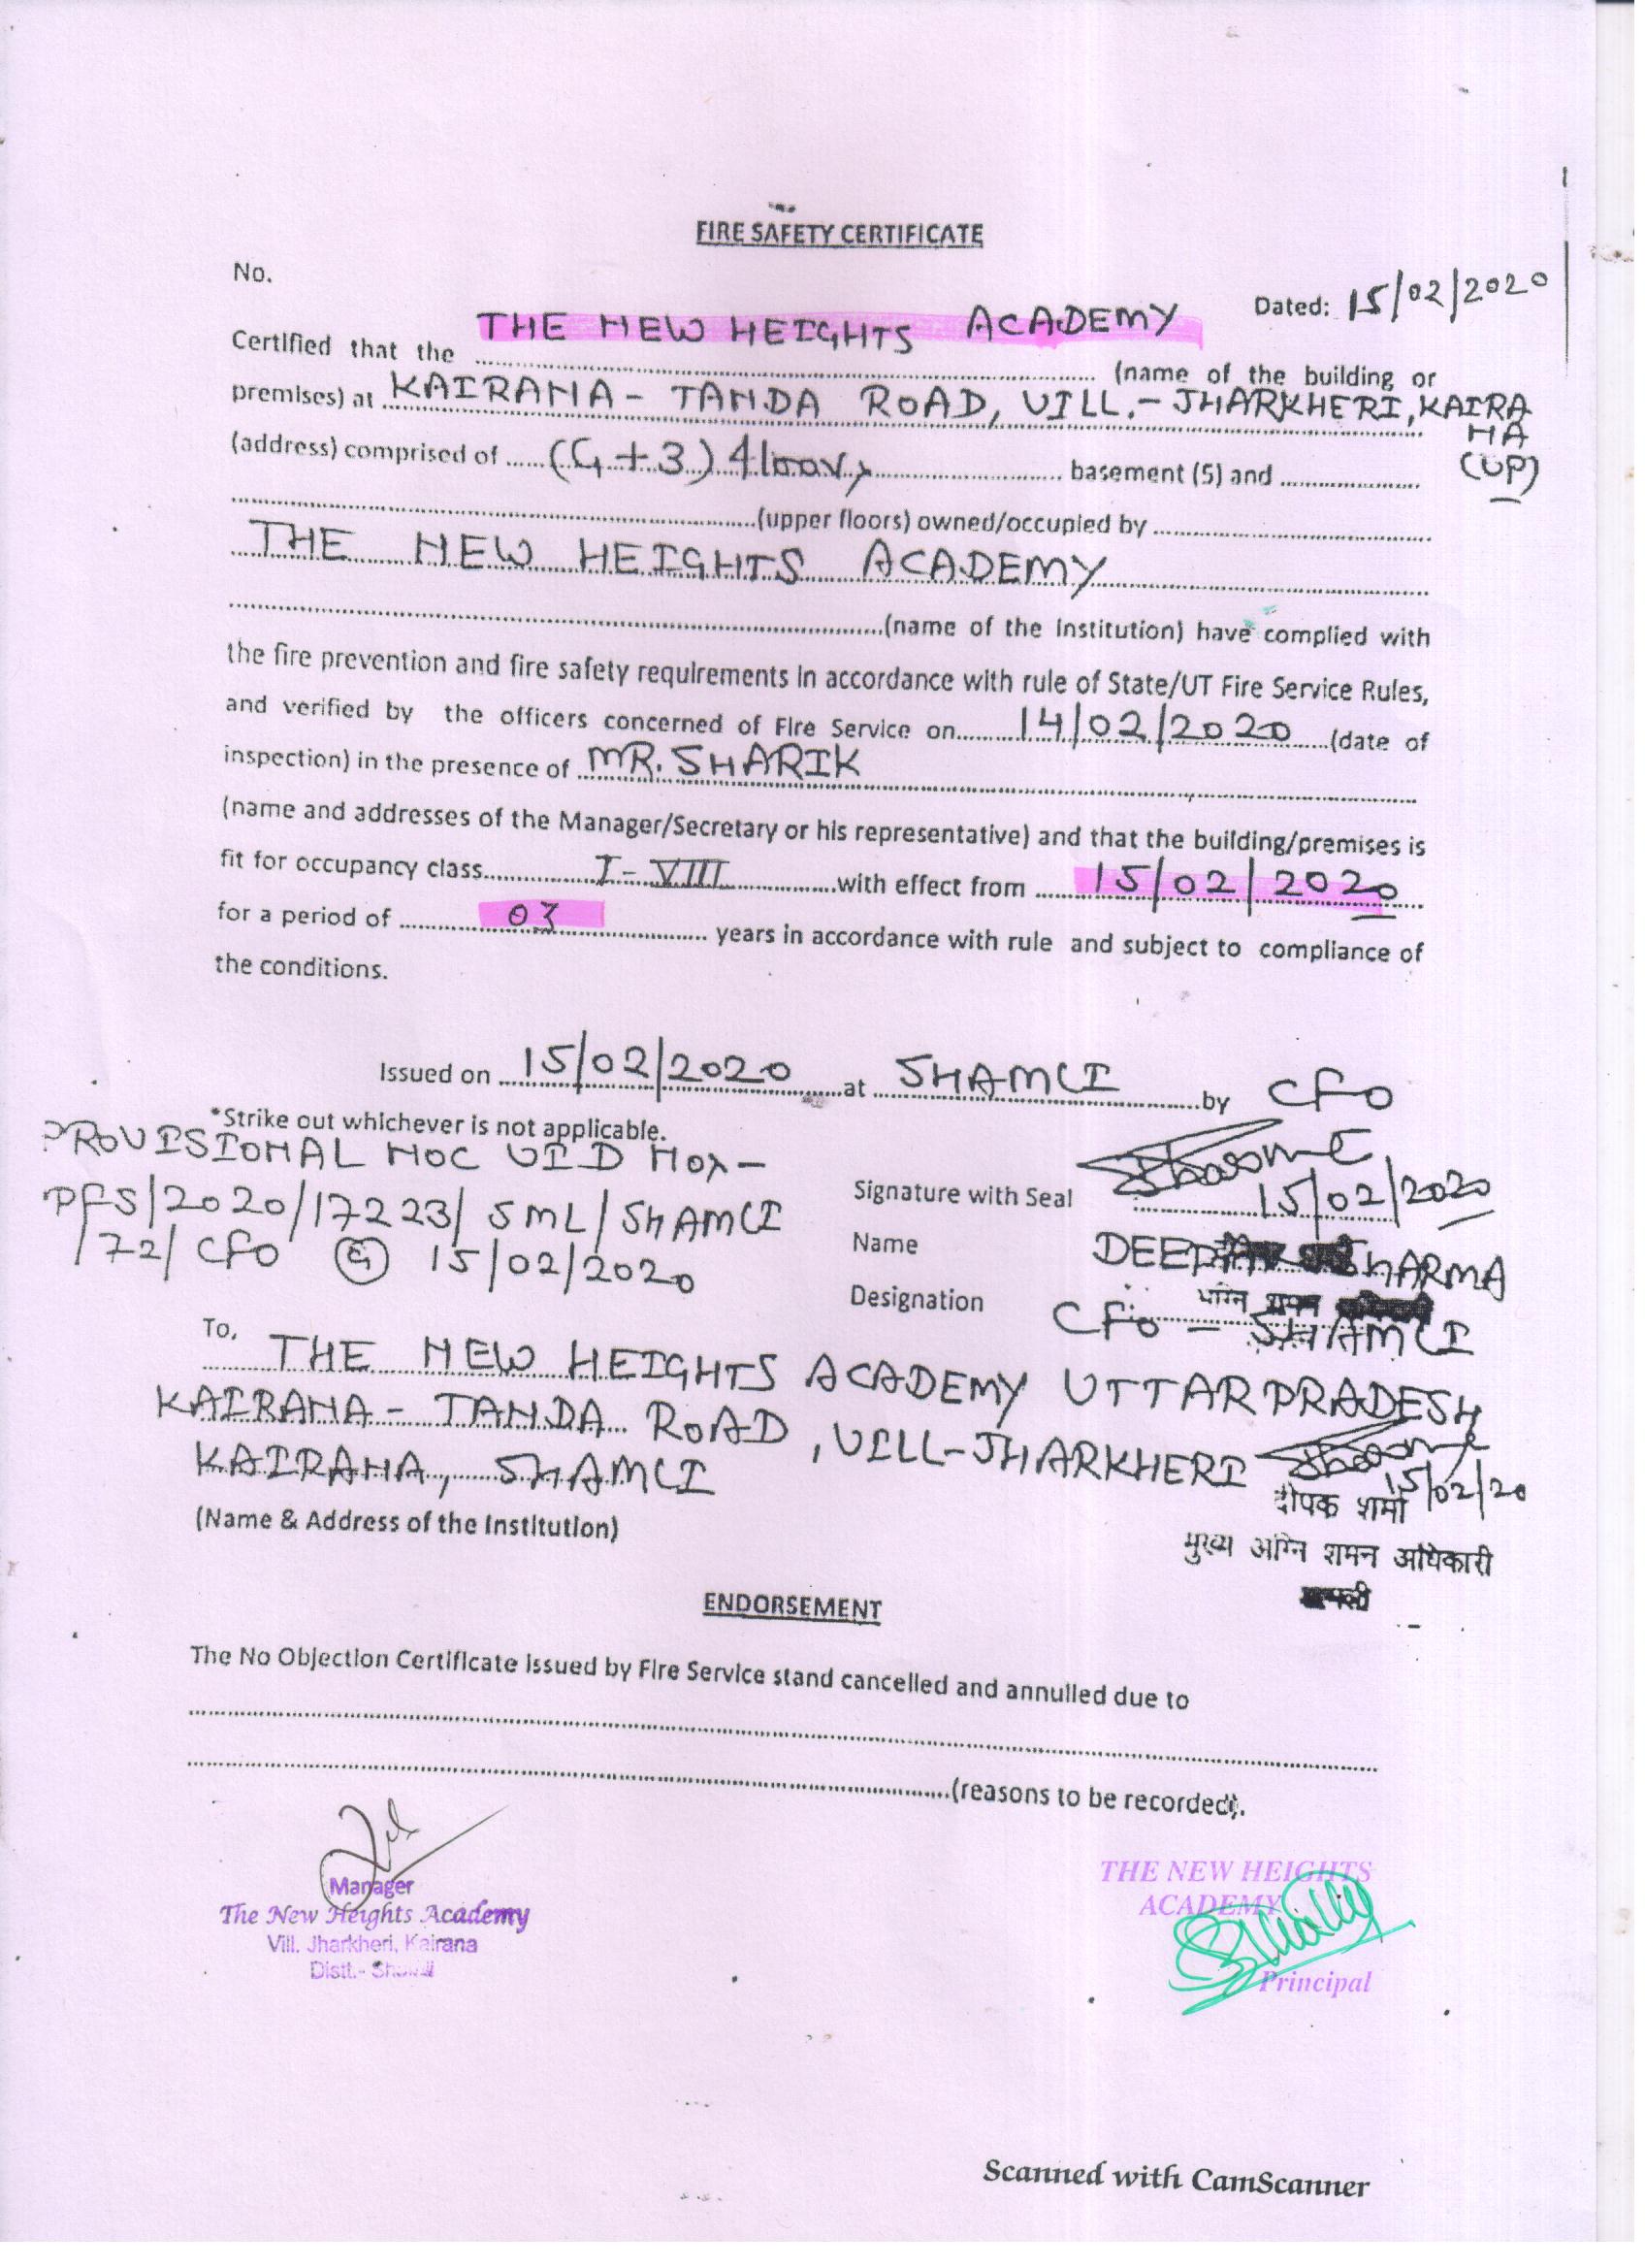 FIRE SAFETY CERTIFICATE
No.
Dated: 15/02/2020
Certified that the THE NEW HEIGHTS ACADEMY (name of the building or
premises) at KAIRANA - TANDA ROAD, VILL.- JHARKHERI, KAIRA
NA
(address) comprised of (G+3) floors basement (5) and
(UP)
(upper floors) owned/occupied by
THE NEW HEIGHTS ACADEMY
(name of the Institution) have complied with
the fire prevention and fire safety requirements in accordance with rule of State/UT Fire Service Rules,
and verified by the officers concerned of Fire Service on 14/02/2020 (date of
inspection) in the presence of MR. SHARIK
(name and addresses of the Manager/Secretary or his representative) and that the building/premises is
fit for occupancy class I - VIII with effect from 15/02/2020
for a period of 03 years in accordance with rule and subject to compliance of
the conditions.
Issued on 15/02/2020 at SHAMLI by CFO
*Strike out whichever is not applicable.
PROVISIONAL NOC UID NO:-
PFS/2020/17223/SML/SHAMLI
/72/CFO 15/02/2020
Signature with Seal
15/02/2020
Name DEEPAK SHARMA
Designation अग्नि शमन
CFO - SHAMLI
To,
THE NEW HEIGHTS ACADEMY UTTAR PRADESH
KAIRANA - TANDA ROAD, VILL-JHARKHERI
KAIRANA, SHAMLI
15/02/20
दीपक शर्मा
(Name & Address of the Institution)
मुख्य अग्नि शमन अधिकारी
ENDORSEMENT
The No Objection Certificate issued by Fire Service stand cancelled and annulled due to
(reasons to be recorded).
Manager
The New Heights Academy
Vill. Jharkheri, Kairana
Distt.- Shamli
THE NEW HEIGHTS
ACADEMY
Principal
Scanned with CamScanner